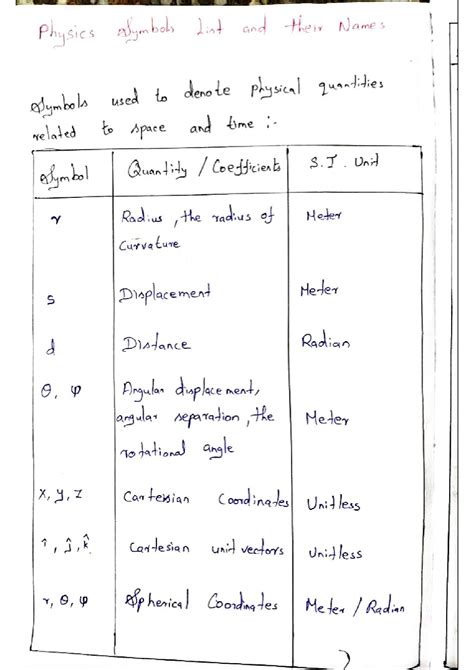 Physics Symbols List and their Names
Symbols used to denote physical quantities
related to space and time :-
Symbol Quantity / Coefficients S.I. Unit
r Radius, the radius of Meter
curvature
s Displacement Meter
d Distance Radian
θ, φ Angular displacement,
angular separation, the Meter
rotational angle
x, y, z Cartesian Coordinates Unitless
î, ĵ, k̂ Cartesian unit vectors Unitless
r, θ, φ Spherical Coordinates Meter / Radian